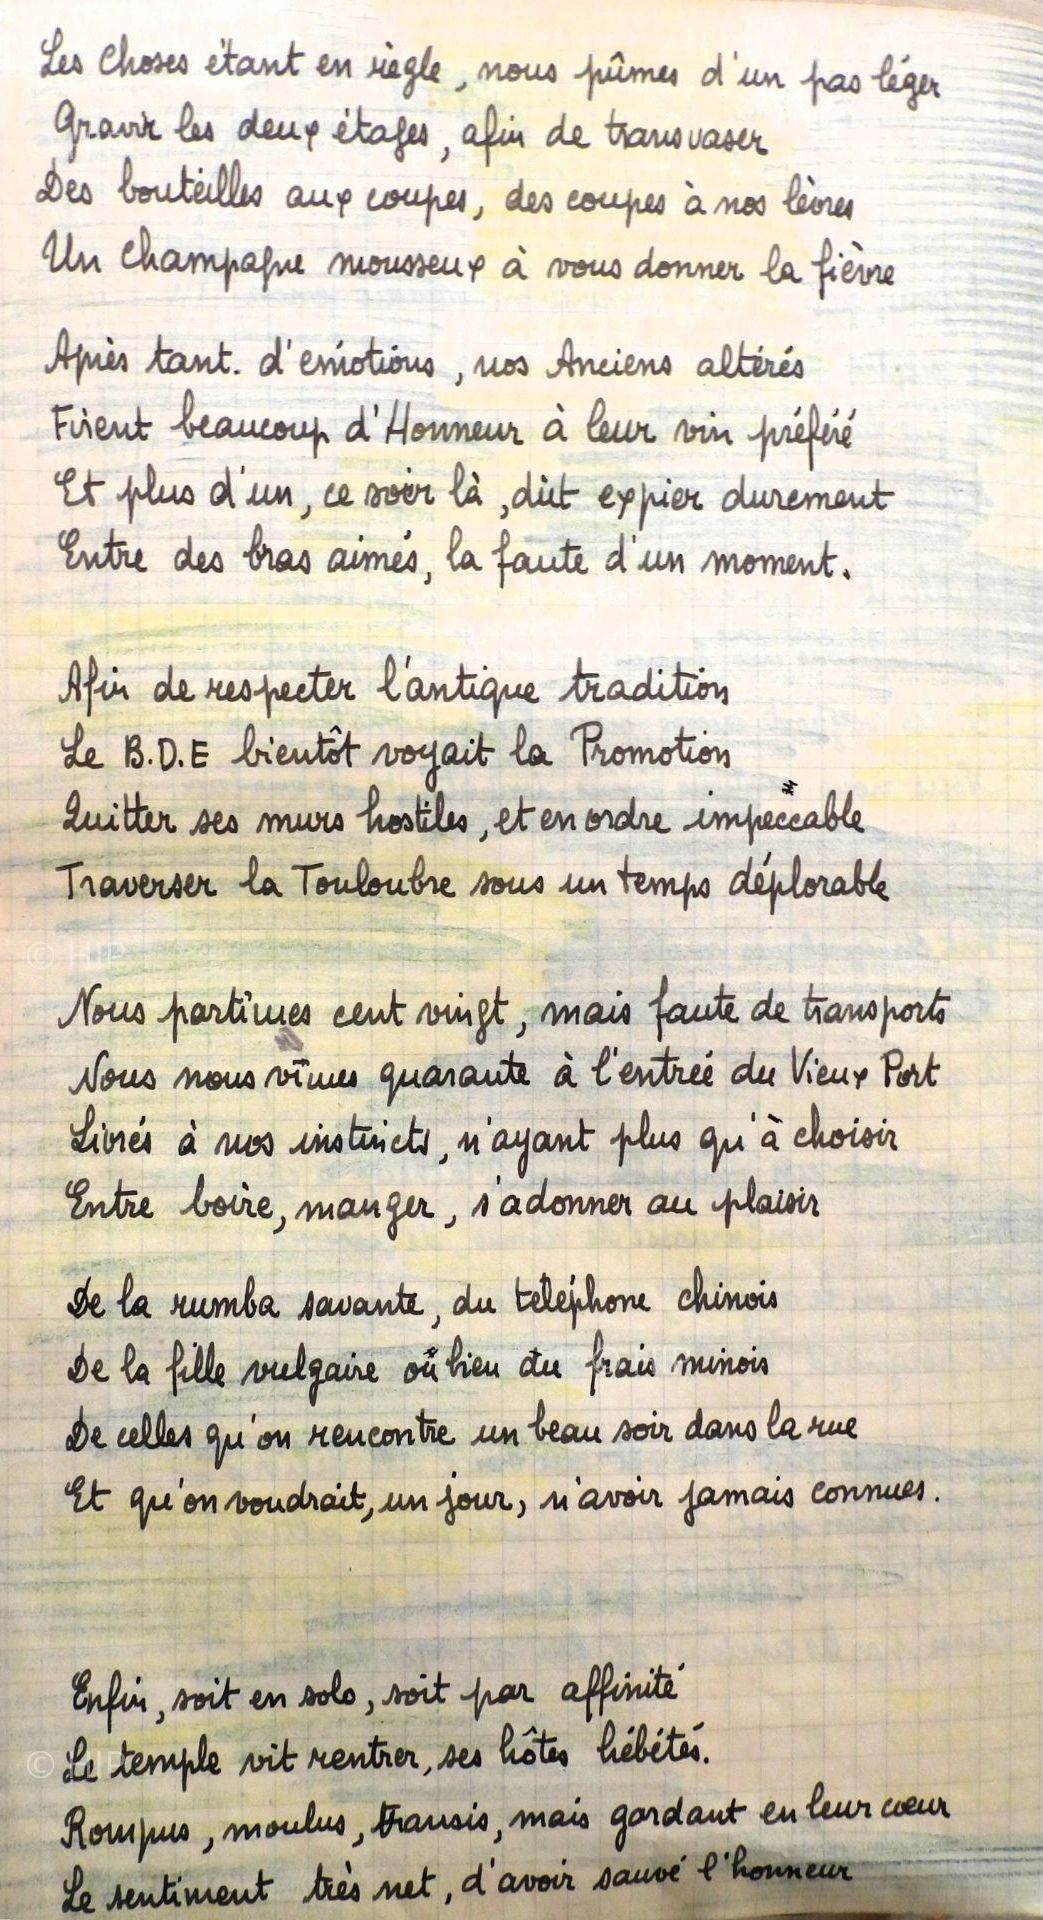 Les Choses étant en règle, nous pûmes d'un pas léger
Gravir les deux étages, afin de transvaser
Des bouteilles aux coupes, des coupes à nos lèvres
Un Champagne mousseux à vous donner la fièvre
Après tant. d'émotions, nos Anciens altérés
Firent beaucoup d'Honneur à leur vin préféré
Et plus d'un, ce soir là, dût expier durement
Entre des bras aimés, la faute d'un moment.
Afin de respecter l'antique tradition
Le B.D.E bientôt voyait la Promotion
Quitter ses murs hostiles, et en ordre impeccable
Traverser la Touloubre sous un temps déplorable
© HIP
Nous partîmes cent vingt, mais faute de transports
Nous nous vîmes quarante à l'entrée du Vieux Port
Livrés à nos instincts, n'ayant plus qu'à choisir
Entre boire, manger, s'adonner au plaisir
De la rumba savante, du téléphone chinois
De la fille vulgaire où bien du frais minois
De celles qu'on rencontre un beau soir dans la rue
Et qu'on voudrait, un jour, n'avoir jamais connues.
Enfin, soit en solo, soit par affinité
© HIP
Le temple vit rentrer, ses hôtes hébétés.
Rompus, moulus, transis, mais gardant en leur cœur
Le sentiment très net, d'avoir sauvé l'honneur